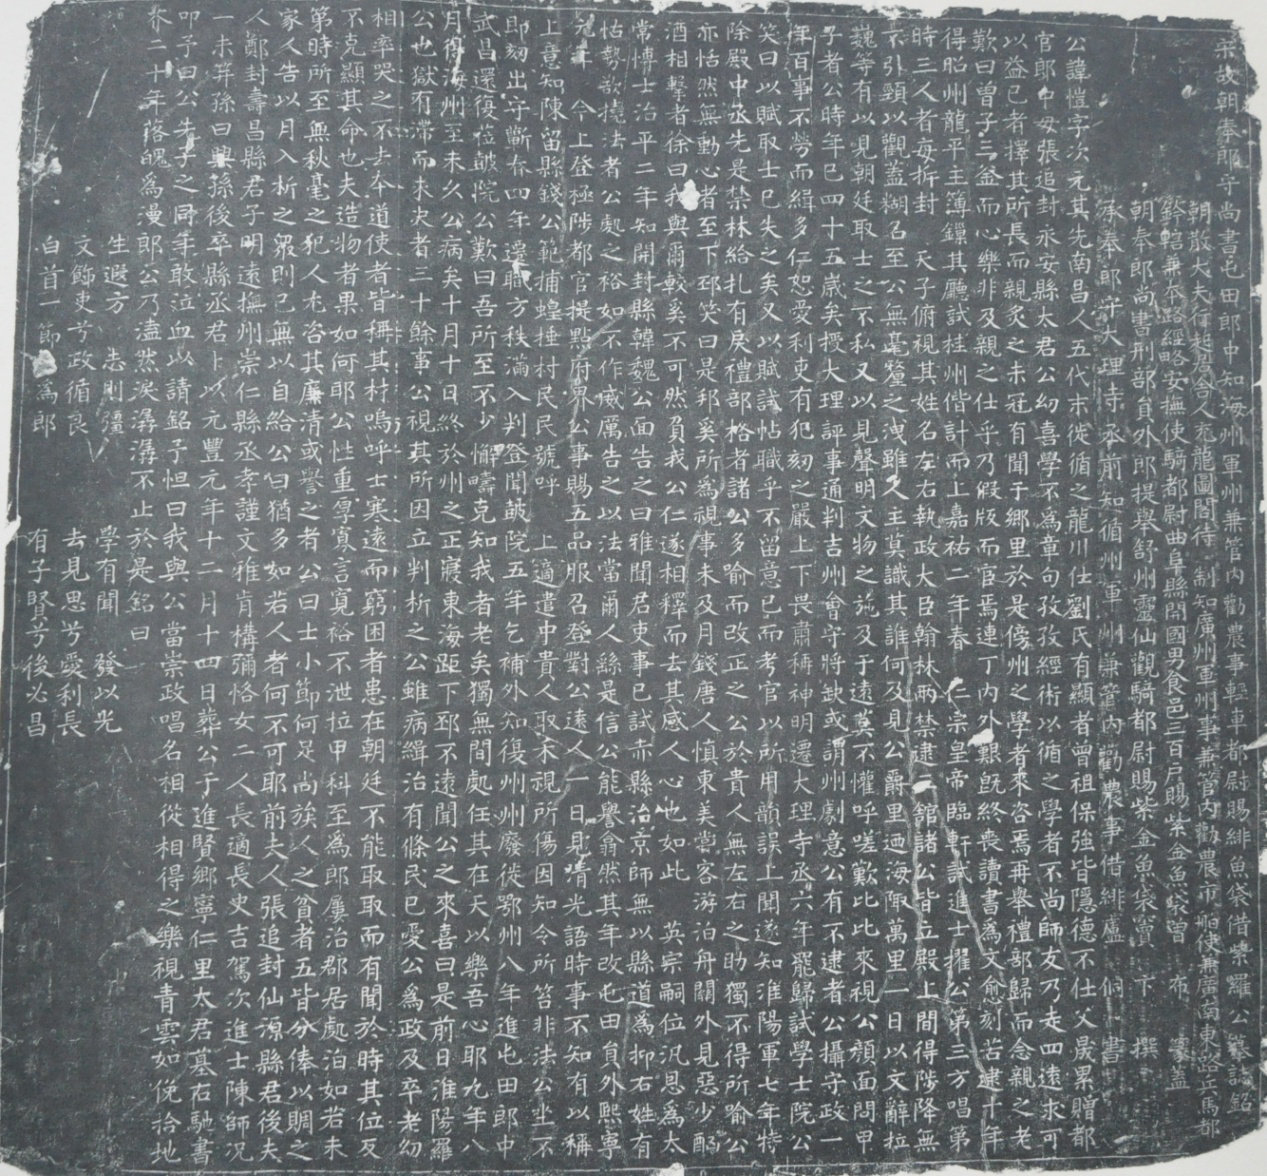 宋故朝奉郎守尚書屯田郎中知海州軍州兼管內勸農事輕車都尉賜緋魚袋借紫羅公墓誌銘
朝散大夫行起居舍人充龍圖閣待制知廣州軍州事兼管內勸農市舶使兼廣南東路兵馬都
鈐轄兼本路經略安撫使騎都尉曲阜縣開國男食邑三百戶賜紫金魚袋曾 布 篆蓋
朝奉郎尚書刑部員外郎提舉舒州靈仙觀騎都尉賜紫金魚袋竇 卞 撰
承奉郎守大理寺丞前知循州軍州兼管內勸農事借緋盧 侗 書
公諱愷字次元其先南昌人五代末徙循之龍川仕劉氏有顯者曾祖保強皆隱德不仕父晟累贈都
官郎中母張追封永安縣太君公幼喜學不為章句孜孜經術以循之學者不尚師友乃走四遠求可
以益己者擇其所長而親炙之未冠有聞于鄉里於是傍州之學者來咨焉再舉禮部歸而念親之老
歎曰曾子三釜而心樂非及親之仕乎乃假版而官焉連丁內外艱既終喪讀書為文愈刻苦逮十年
得昭州龍平主簿鏁其廳試桂州偕計而上嘉祐二年春 仁宗皇帝臨軒試進士擢公第三方唱第
時三人者每拆封 天子俯視其姓名左右執政大臣翰林兩禁逮三館諸公皆立殿上間得陟降無
不引頸以觀蓋糊名至公無毫釐之洩雖人主莫識其誰何及見公爵里迺海陬萬里一日以文辭拉
魏等有以見朝廷取士之不私又以見聲明文物之施及于遠莫不懽呼嗟歎比比來視公顏面問甲
子者公時年已四十五歲矣授大理評事通判吉州會守將缺或謂州劇意公有不逮者公攝守政一
年百事不勞而緝多仁恕愛利吏有犯刻之嚴上下畏肅稱神明遷大理寺丞六年罷歸試學士院公
笑曰以賦取士已失之矣又以賦試帖職乎不留意已而考官以所用韻誤上聞遂知淮陽軍七年特
除殿中丞先是禁林給札有戾禮部格者諸公多喻而改正之公於貴人無左右之助獨不得所喻公
亦恬然無動心者至下邳笑曰是邦奚所為視事未及月錢唐人慎東美嘗客游泊舟關外見惡少酗
酒相擊者徐曰我與爾較奚不可然負我公仁遂相釋而去其感人心也如此 英宗嗣位汎恩為太
常博士治平二年知開封縣韓魏公面告之曰雅聞君吏事已試赤縣治京師無以縣道為抑右姓有
怙勢欲撓法者公處之裕如不作威厲告之以法當爾人繇是信公能譽翕然其年改屯田員外熙寧
元年 今上登極陟都官提點府界公事賜五品服召登對公遠人一日見清光語時事不知有以稱
上意知陳留縣錢公範捕蝗捶村民民號呼 上適遣中貴人取禾視所傷因知令所笞非法公坐不
即劾出守蘄春四年遷職方秩滿入判登聞皷院五年乞補外知復州州廢徙鄂州八年進屯田郎中
武昌還復莅皷院公歎曰吾所至不少懈疇克知我者老矣獨無間處任其在天以樂吾心耶九年八
月得海州至未久公病矣十月十日終於州之正寢東海距下邳不遠聞公之來喜曰是前日淮陽羅
公也獄有滯而來决者三十餘事公視其所因立判析之公雖病緝治有條民已愛公為政及卒老幼
相率哭之不去本道使者皆稱其材嗚呼士寒遠而窮困者患在朝廷不能取取而有聞於時其位反
不克顯其命也夫造物者果如何耶公性重厚寡言寬裕不泄拉甲科至為郎屢治郡居處泊如若未
第時所至無秋毫之犯人不咨其廉清或譽之者公曰士小節何足尚族人之貧者五皆分俸以賙之
家人告以月入析之眾則已無以自給公曰猶多如若人者何不可耶前夫人張追封仙源縣君後夫
人鄭封壽昌縣君子明遠撫州崇仁縣丞孝謹文雅肯構彌恪女二人長適長史吉駕次進士陳師況
一未笄孫曰興孫後卒縣丞君卜以元豐元年十二月十四日葬公于進賢鄉寧仁里太君墓右馳書
叩予曰公先子之同年敢泣血以請銘予怛曰我與公當崇政唱名相從相得之樂視青雲如俛拾地
芥二十年落魄為漫郎公乃溘然淚潺潺不止於是銘曰
生遐方 志則彊 學有聞 發以光
文飾吏兮政循良 去見思兮愛利長
白首一節兮為郎 有子賢兮後必昌